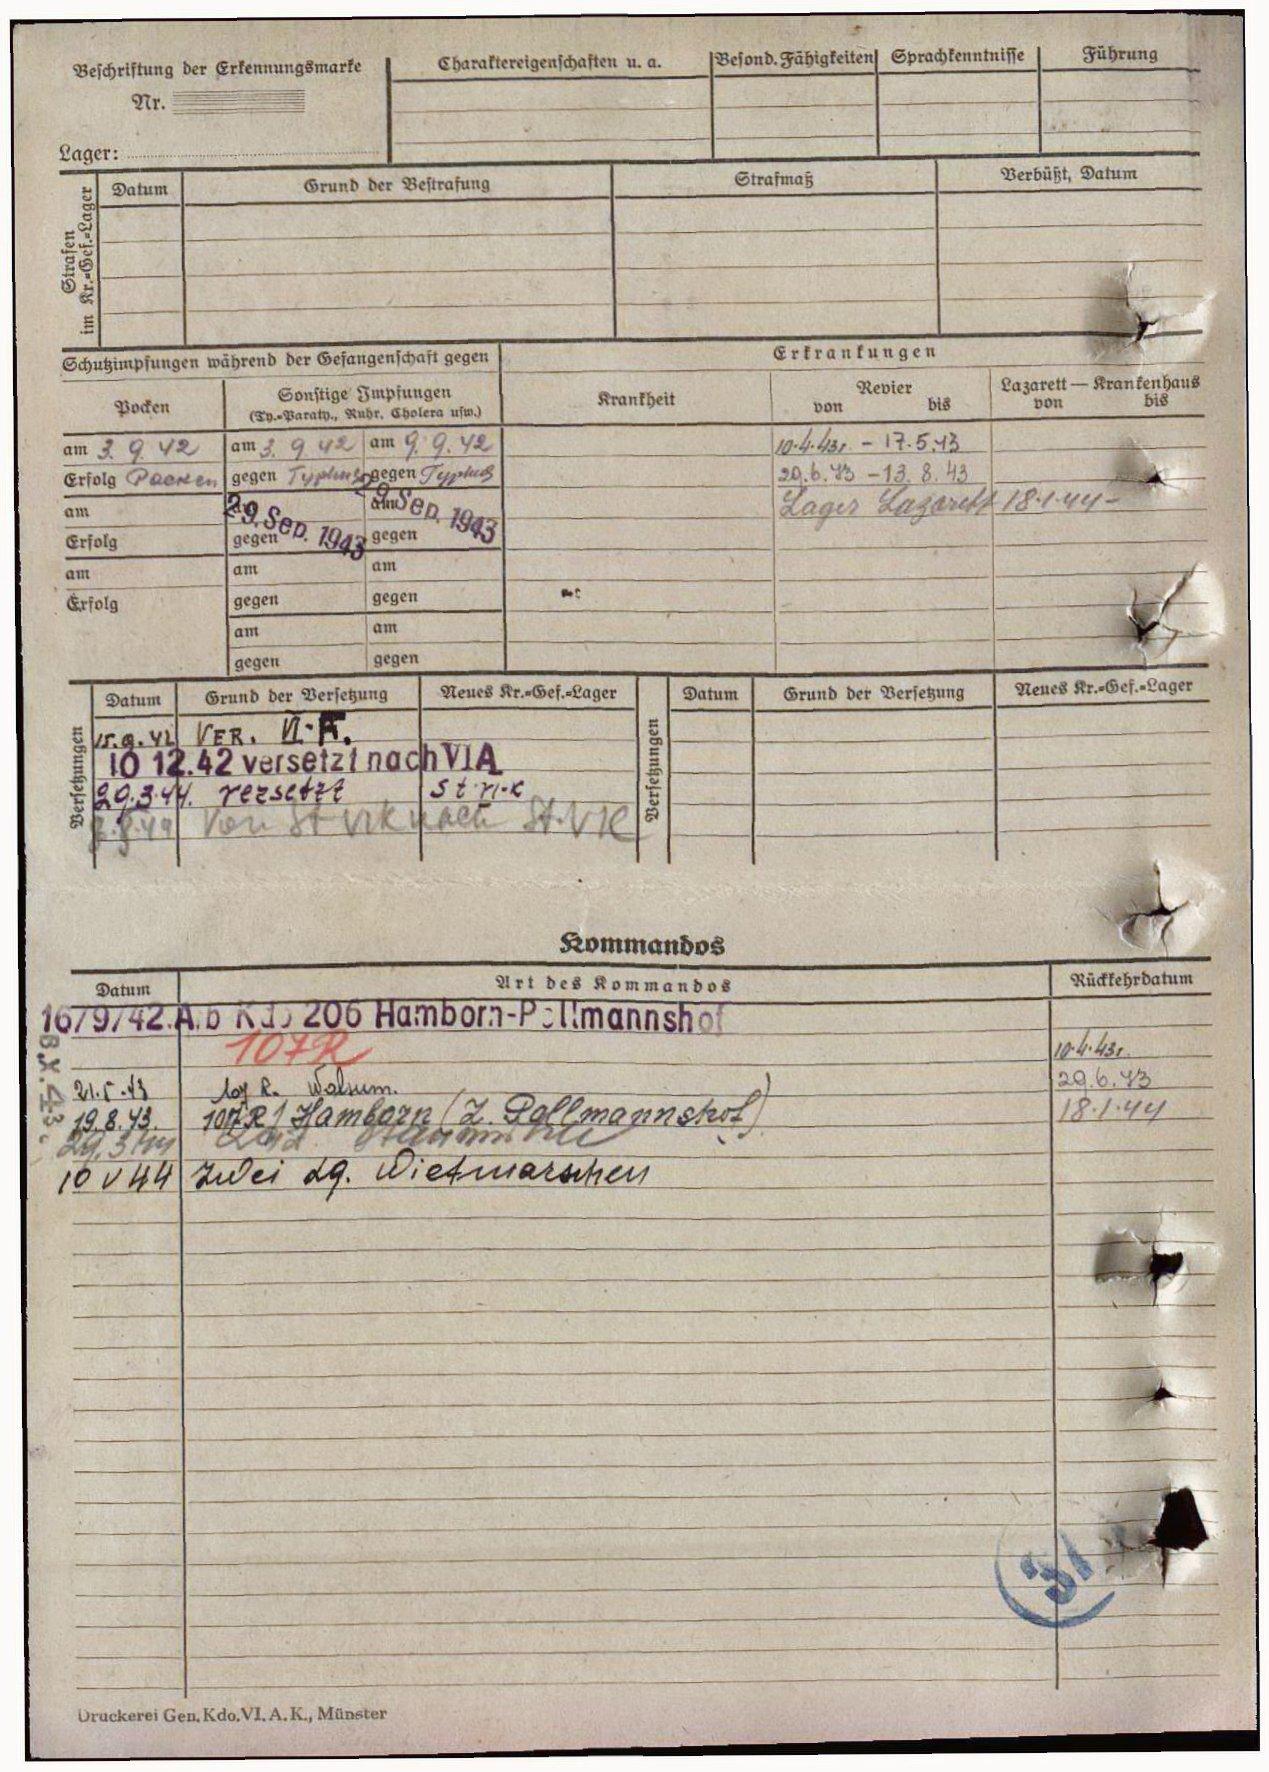 Beschriftung der Erkennungsmarke
Nr.
Lager:
Charaktereigenschaften u. a.
Besond. Fähigkeiten
Sprachkenntnisse
Führung
Strafen im Kr.-Gef.-Lager
Datum
Grund der Bestrafung
Strafmaß
Verbüßt, Datum
Schutzimpfungen während der Gefangenschaft gegen
Erkrankungen
Pocken
Sonstige Impfungen
(Ty.-Paraty., Ruhr, Cholera usw.)
Krankheit
Revier
von bis
Lazarett — Krankenhaus
von bis
am 3. 9. 42 am 3. 9 42 am 9. 9. 42 10.4.43r. - 17.5.43
Erfolg Pocken gegen Typhus gegen Typhus 29.6.43 - 13.8.43
am 29. Sep. 1943 am 29. Sep. 1943 Lager Lazarett 18.1.44 -
Erfolg gegen gegen
am am am
Erfolg gegen gegen
am am
gegen gegen
Versetzungen
Datum Grund der Versetzung Neues Kr.-Gef.-Lager
Versetzungen
Datum Grund der Versetzung Neues Kr.-Gef.-Lager
15.9.42 VER. VI-F.
10 12.42 versetzt nach VI A
29.3.44. versetzt St. VI-K
Von St VIK nach St. VIC
Kommandos
Datum Art des Kommandos Rückkehrdatum
16/9/42. Arb Kdo 206 Hamborn-Pollmannshof
107R 10.4.43r.
21.5.43 107 R. Walsum. 29.6.43
19.8.43. 107R/ Hamborn (Z. Pollmannshof) 18.1.44
29.3.44
10 V 44 Zwei Lg. Wietmarschen
31
Druckerei Gen. Kdo. VI. A. K., Münster